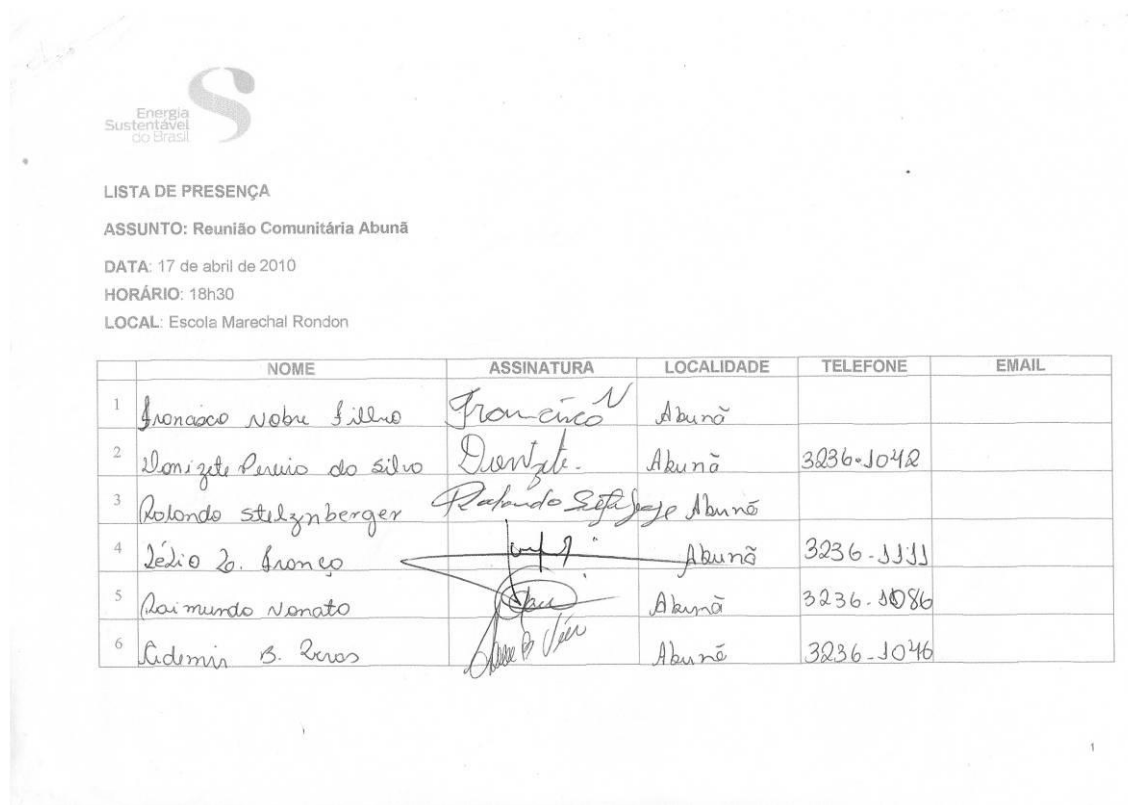 Energia
Sustentável
do Brasil
LISTA DE PRESENÇA
ASSUNTO: Reunião Comunitária Abunã
DATA: 17 de abril de 2010
HORÁRIO: 18h30
LOCAL: Escola Marechal Rondon
NOME ASSINATURA LOCALIDADE TELEFONE EMAIL
1 Francisco Nobre Filho Francisco N Abunã
2 Donizete Pereira da Silva Donizete. Abunã 3236-1042
3 Rolando Stelznberger Rolando Abunã
4 Lélio Franco Abunã 3236-1111
5 Raimundo Nonato Abunã 3236-1086
6 Ademir B. Abunã 3236-1046
1